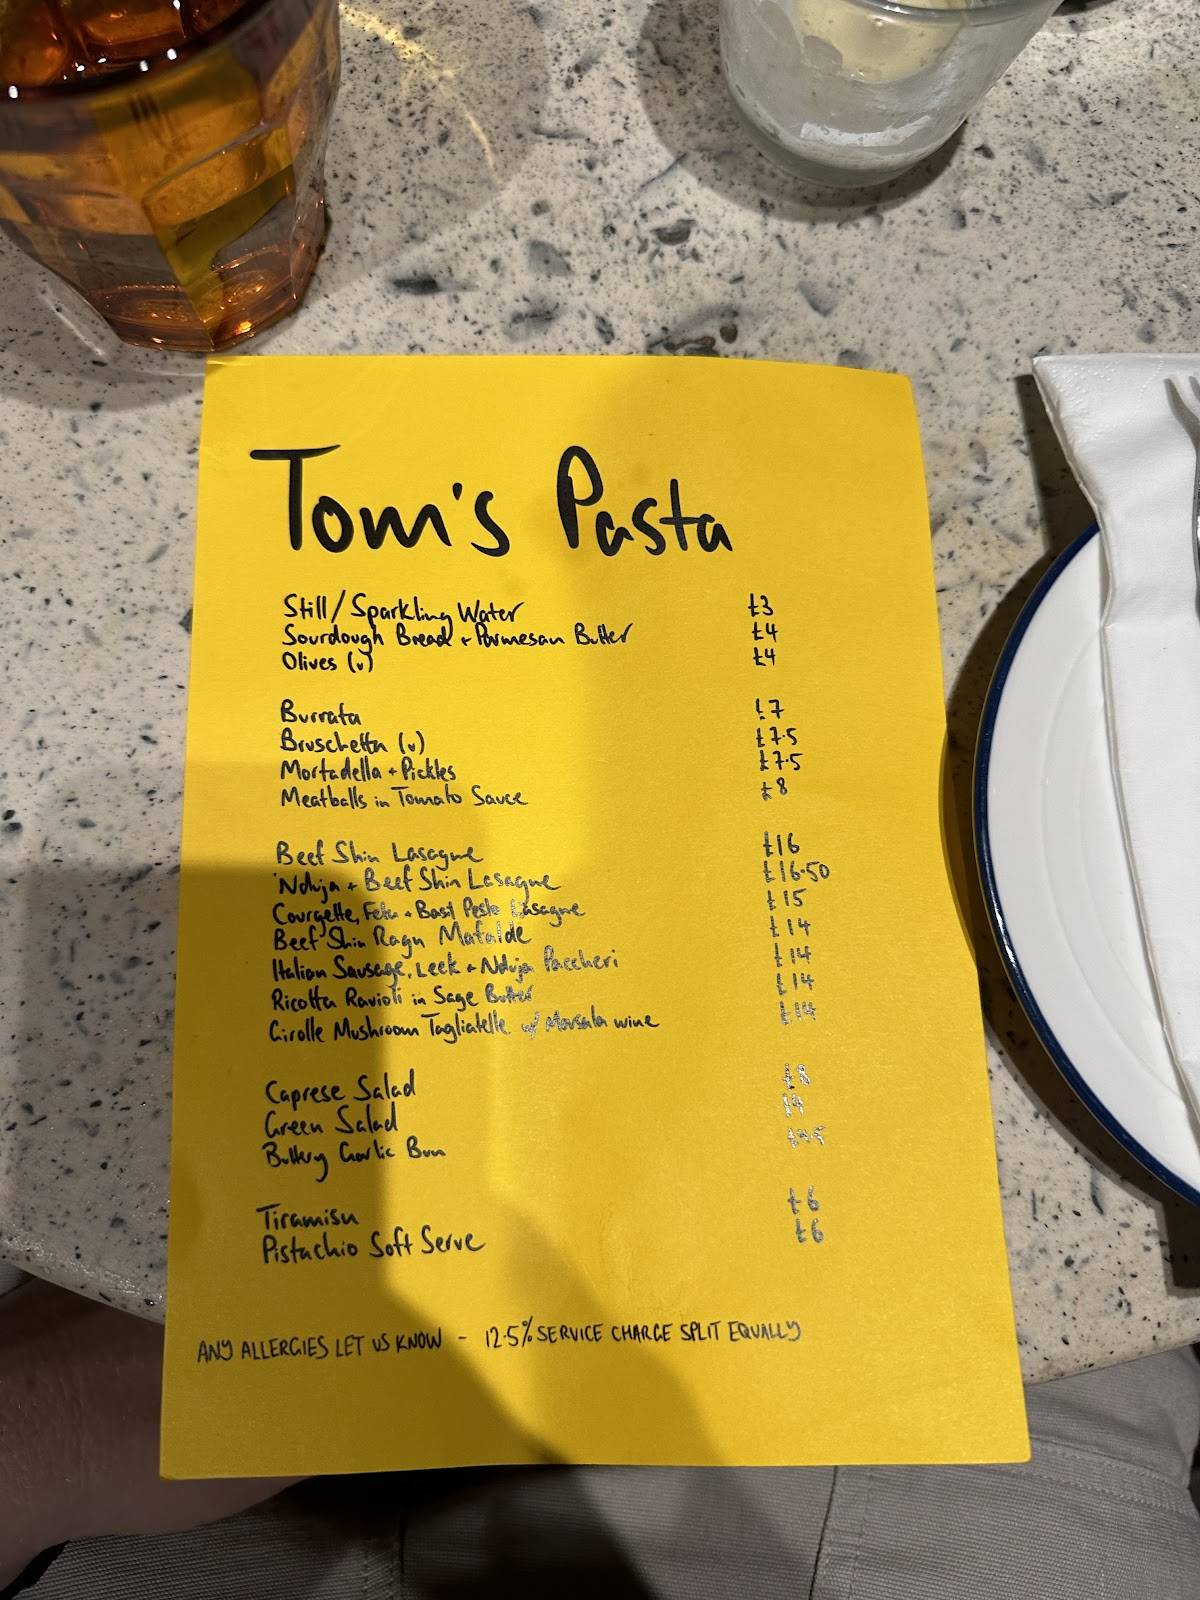 Tom's Pasta
Still/Sparkling Water £3
Sourdough Bread + Parmesan Butter £4
Olives (v) £4
Burrata £7
Bruschetta (v) £7.5
Mortadella + Pickles £7.5
Meatballs in Tomato Sauce £8
Beef Shin Lasagne £16
'Nduja + Beef Shin Lasagne £16.50
Courgette, Feta + Basil Pesto Lasagne £15
Beef Shin Ragu Mafalde £14
Italian Sausage, Leek + Nduja Paccheri £14
Ricotta Ravioli in Sage Butter £14
Girolle Mushroom Tagliatelle w/ Marsala wine £14
Caprese Salad £8
Green Salad
Buttery Garlic Bun £4.5
Tiramisu £6
Pistachio Soft Serve £6
ANY ALLERGIES LET US KNOW - 12.5% SERVICE CHARGE SPLIT EQUALLY